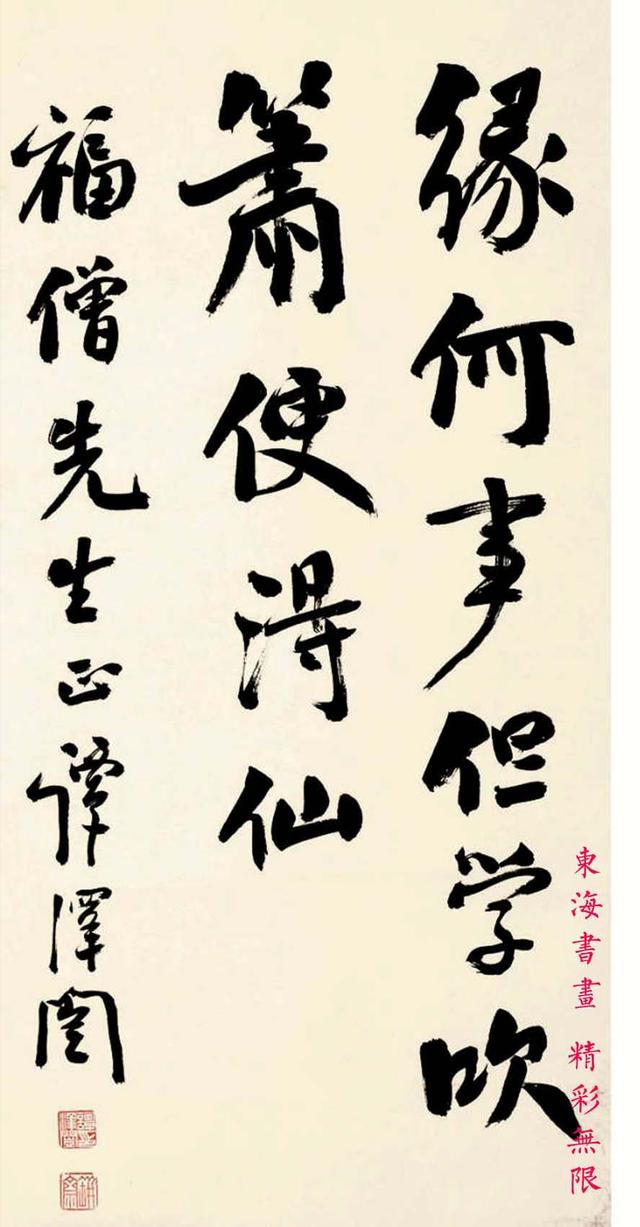 緣何事但学吹
簫便得仙
福僧先生正譚澤闓
東海書畫 精彩無限